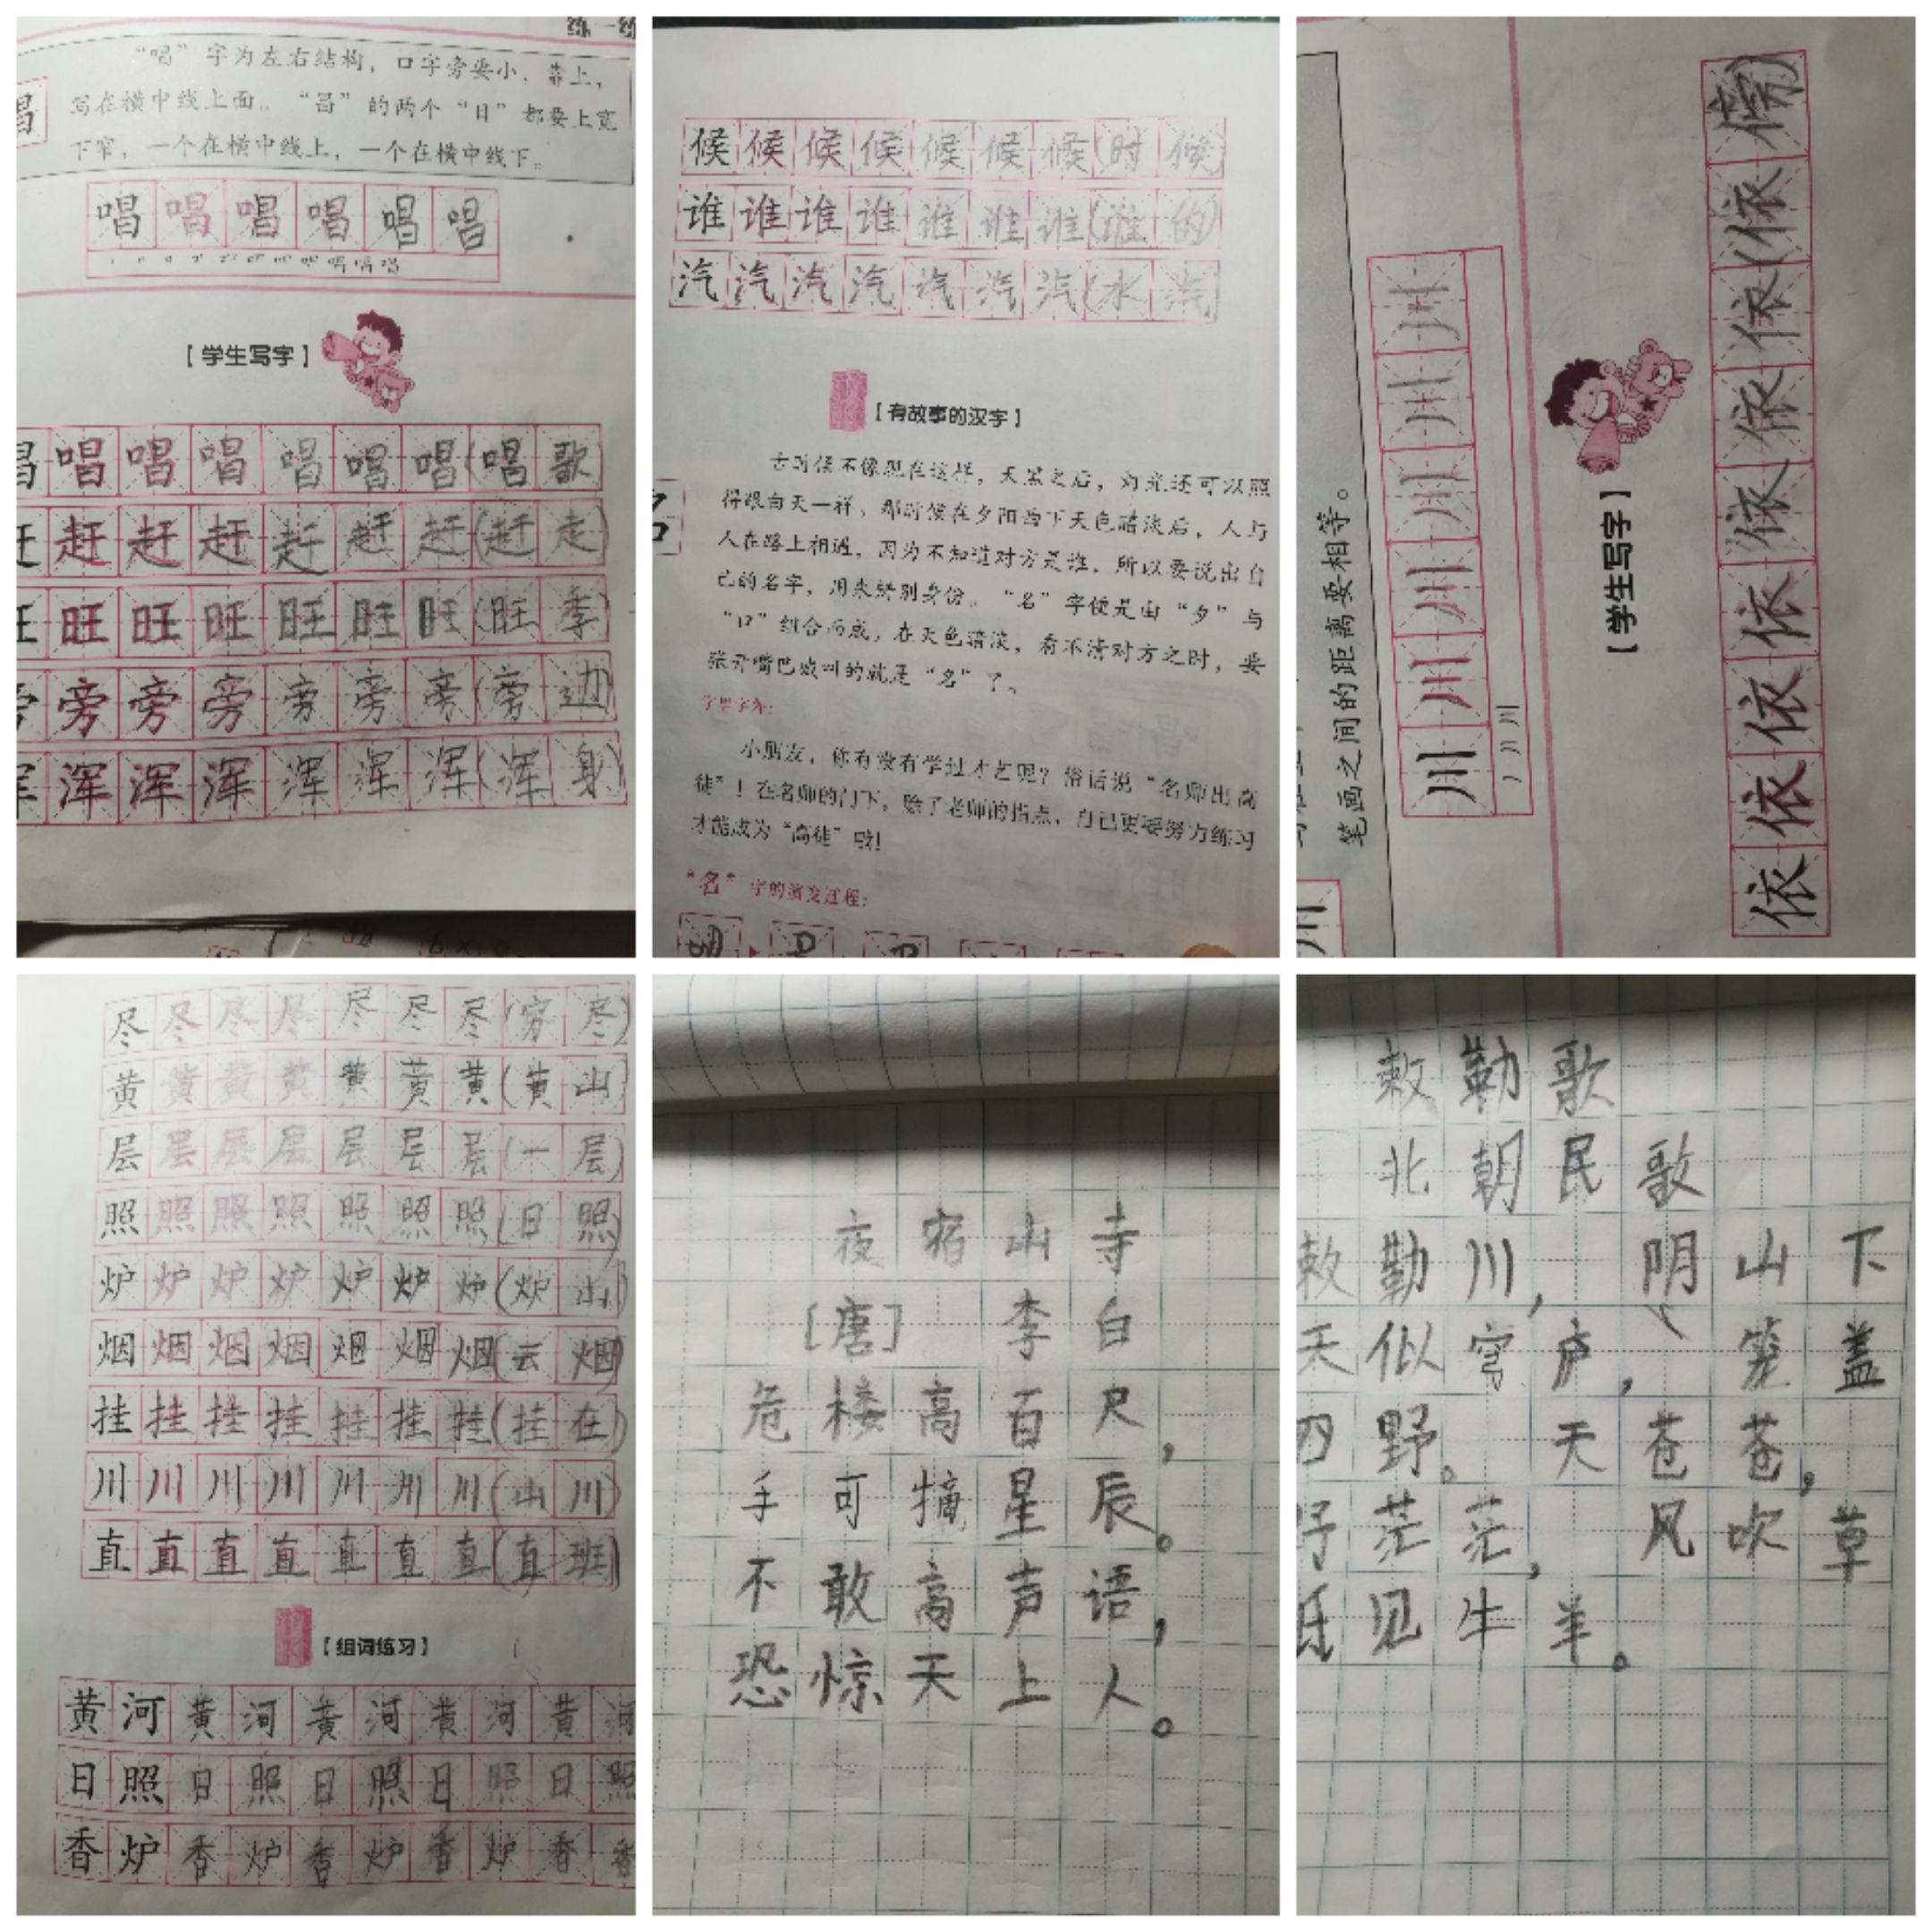 练一练
“唱”字为左右结构，口字旁要小、靠上，
写在横中线上面。“昌”的两个“日”都要上宽
下窄，一个在横中线上，一个在横中线下。
唱唱唱唱唱唱
【学生写字】
唱唱唱唱唱唱唱(唱歌
赶赶赶赶赶赶赶(赶走)
旺旺旺旺旺旺旺(旺季)
旁旁旁旁旁旁旁(旁边)
浑浑浑浑浑浑浑(浑身)
候候候候候候候(时候)
谁谁谁谁谁谁谁(谁的)
汽汽汽汽汽汽汽(水汽)
【有故事的汉字】
古时候不像现在这样，天黑之后，灯光还可以照
得跟白天一样。那时候在夕阳西下天色暗淡后，人与
人在路上相遇，因为不知道对方是谁，所以要说出自
己的名字，用来辨别身份。“名”字便是由“夕”与
“口”组合而成，在天色暗淡，看不清对方之时，要
张开嘴巴喊叫的就是“名”了。
字里字外：
小朋友，你有没有学过才艺呢？俗话说“名师出高
徒”！在名师的门下，除了老师的指点，自己更要努力练习
才能成为“高徒”哦！
“名”字的演变过程：
笔画之间的距离要相等。
川川川川川川
【学生写字】
依依依依依依依(依傍)
尽尽尽尽尽尽尽(穷尽)
黄黄黄黄黄黄黄(黄山)
层层层层层层层(一层)
照照照照照照照(日照)
炉炉炉炉炉炉炉(炉山)
烟烟烟烟烟烟烟(云烟)
挂挂挂挂挂挂挂(挂在)
川川川川川川川(山川)
直直直直直直直(直班)
【组词练习】
黄河黄河黄河黄河黄河
日照日照日照日照日照
香炉香炉香炉香炉香香
夜宿山寺
[唐] 李白
危楼高百尺，
手可摘星辰。
不敢高声语，
恐惊天上人。
敕勒歌
北朝民歌
敕勒川，阴山下
天似穹庐，笼盖
四野。天苍苍，
野茫茫，风吹草
低见牛羊。